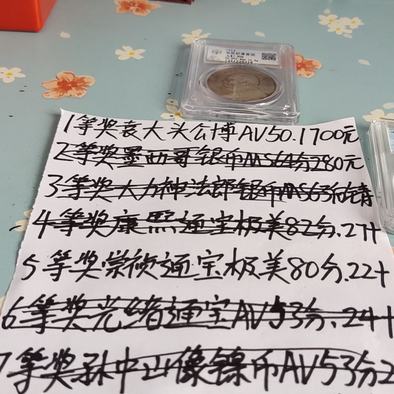 1等奖袁大头公博AV50.1700元
2等奖墨西哥银币MS64分280元
3等奖大力神法郎银币MS63
4等奖康熙通宝极美82分.27+
5等奖崇祯通宝极美80分.22+
6等奖光绪通宝AV53分.24+
7等奖孙中山像镍币AV53分2